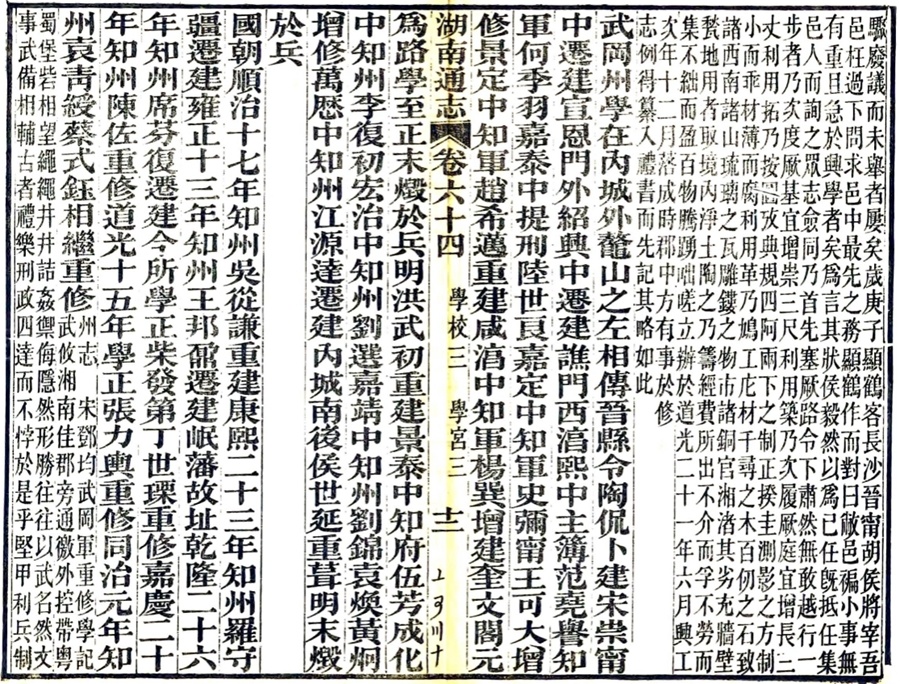 驟廢議而未舉者屢矣歲庚子顯鶴客長沙晉甯胡侯將宰吾
邑枉過下問求邑中最先之務顯鶴作而對曰敝邑褊小事無
有重且急於興學者矣爲言其狀侯毅然以爲已任旣抵任集
邑人而詢之眾志僉同乃首先塞厥路令下肅然無敢越行一
步者乃次度厥基宜增崇三尺利用築乃次履厥庭宜增長二
丈利用拓乃按圖攷典規四阿兩下之制正揆圭測影之方致
小而乖材薄而腐利用革乃鳩工庀材千尋之木百仞之石制
諸西南諸山琉璃之瓦雕鏤之物市諸銅官湘洛其劣充牆壁
甃地用者取境内淨土陶之乃籌經費所出不介而孚不勞而
集不絀而盈百物騰踴咄嗟立辦於道光二十一年六月興工
次年十二月落成時郡中方有事於修
志例得纂入禮書而先記其略如此
武岡州學在内城外鼇山之左相傳晉縣令陶侃卜建宋崇甯
中遷建宣恩門外紹興中遷建譙門西滈熙中主簿范堯譽知
軍何季羽嘉泰中提刑陸世㒷嘉定中知軍史彌甯王可大增
修景定中知軍趙希邁重建咸滈中知軍楊巽增建奎文閣元
湖南通志 卷六十四 學校三 學宮三 十二
爲路學至正末燬於兵明洪武初重建景泰中知府伍芳成化
中知州李復初宏治中知州劉選嘉靖中知州劉錦袁煥黃炯
增修萬歷中知州江源達遷建内城南後侯世延重葺明末燬
於兵
國朝順治十七年知州吳從謙重建康熙二十三年知州羅守
疆遷建雍正十三年知州王邦鼐遷建岷藩故址乾隆二十六
年知州席芬復遷建今所學正柴發第丁世璪重修嘉慶二十
年知州陳佐重修道光十五年學正張力輿重修同治元年知
州袁青綬蔡式鈺相繼重修州志 宋鄧均武岡軍重修學記
武攸湘南佳郡旁通徼外控帶粵
蜀堡砦相望繩繩井井詰姦禦侮隱然形勝往往以武名然文
事武備相輔古者禮樂刑政四達而不悖於是乎堅甲利兵制